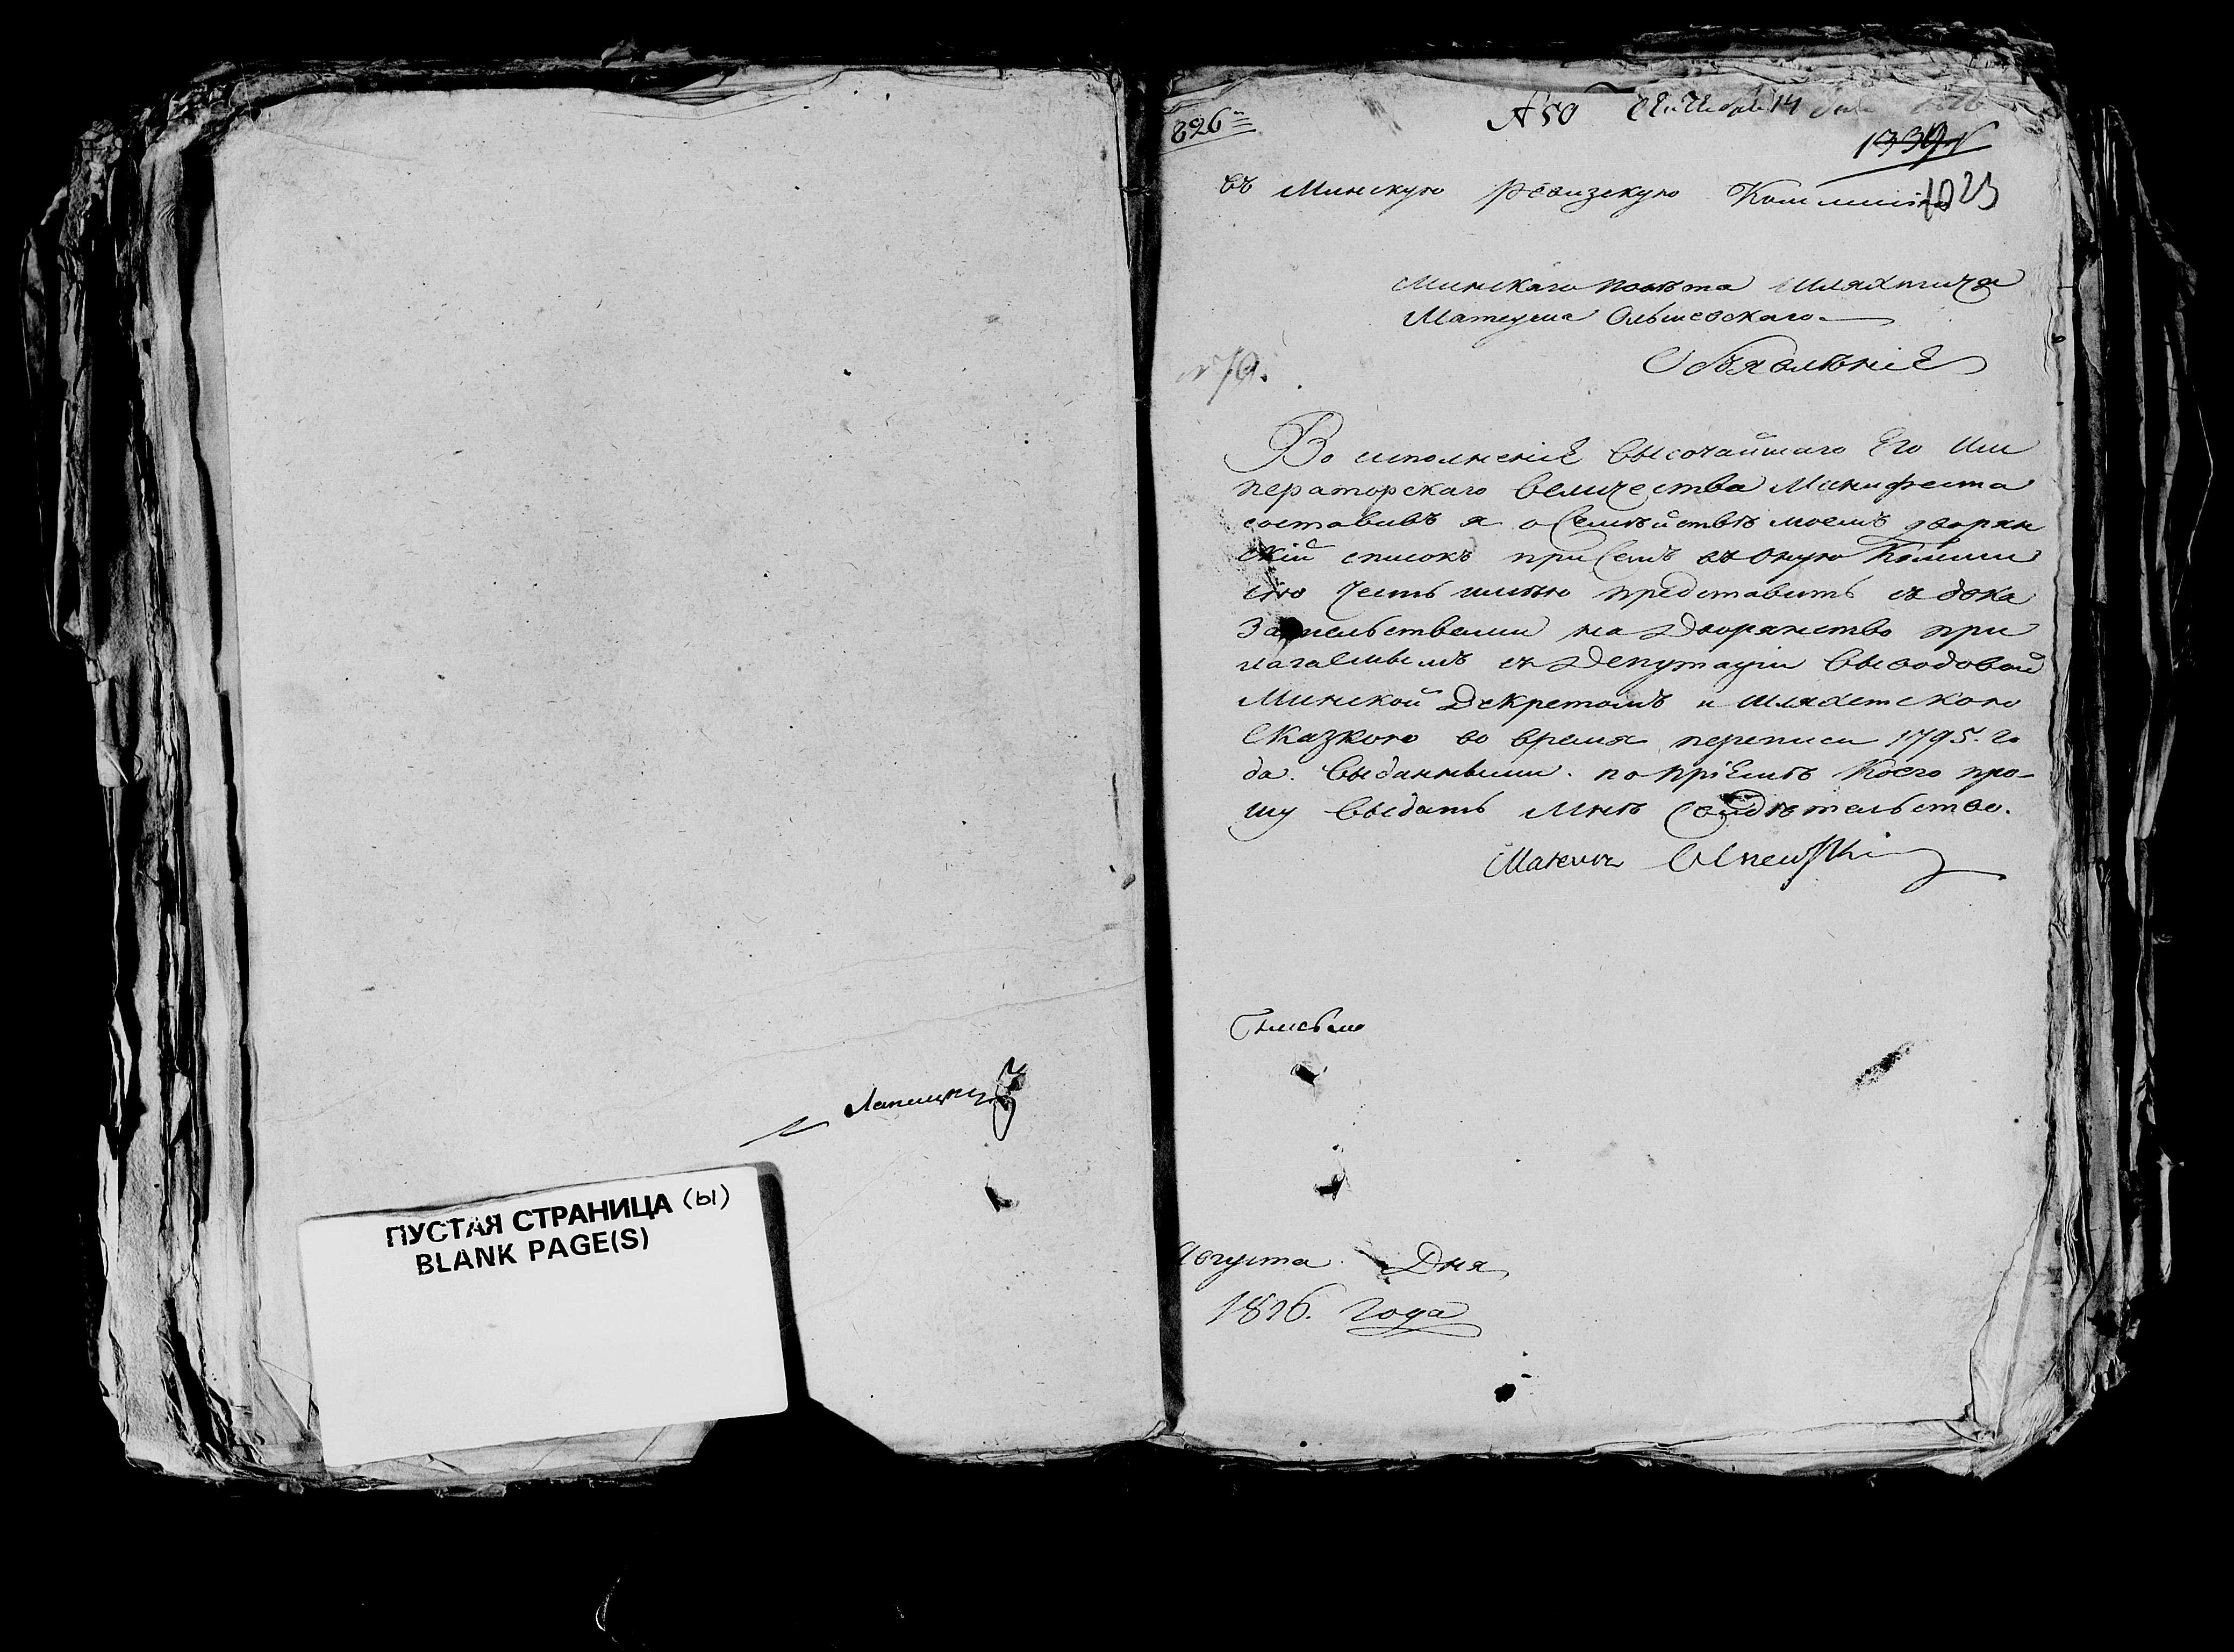 Лапицкій
ПУСТАЯ СТРАНИЦА (ы)
BLANK PAGE(S)
896
№ 50 Сентебря 14
1023
въ Минскую Ревизскую Коммисію
Минскаго повѣта Шляхтича
Матеуша Ольшевскаго
№ 70.
Объявлѣніе
Во исполненіе высочайшаго Его Им
ператорскаго Величества Манифеста
составивъ я о Семѣйствѣ моемъ дворян
скій списокъ при Семъ въ оную Комми
сію честь имѣю представить съ дока
зательствами на дворянство при
лагаемымъ съ Депутаціи Выводовой
Минской Декретомъ и шляхетскою
сказкою во время переписи 1795. го
да. выданными. по пріемѣ коего про-
шу выдать мнѣ свидѣтельство.
Mateusz Olszewski
Августа Дня
1816. года